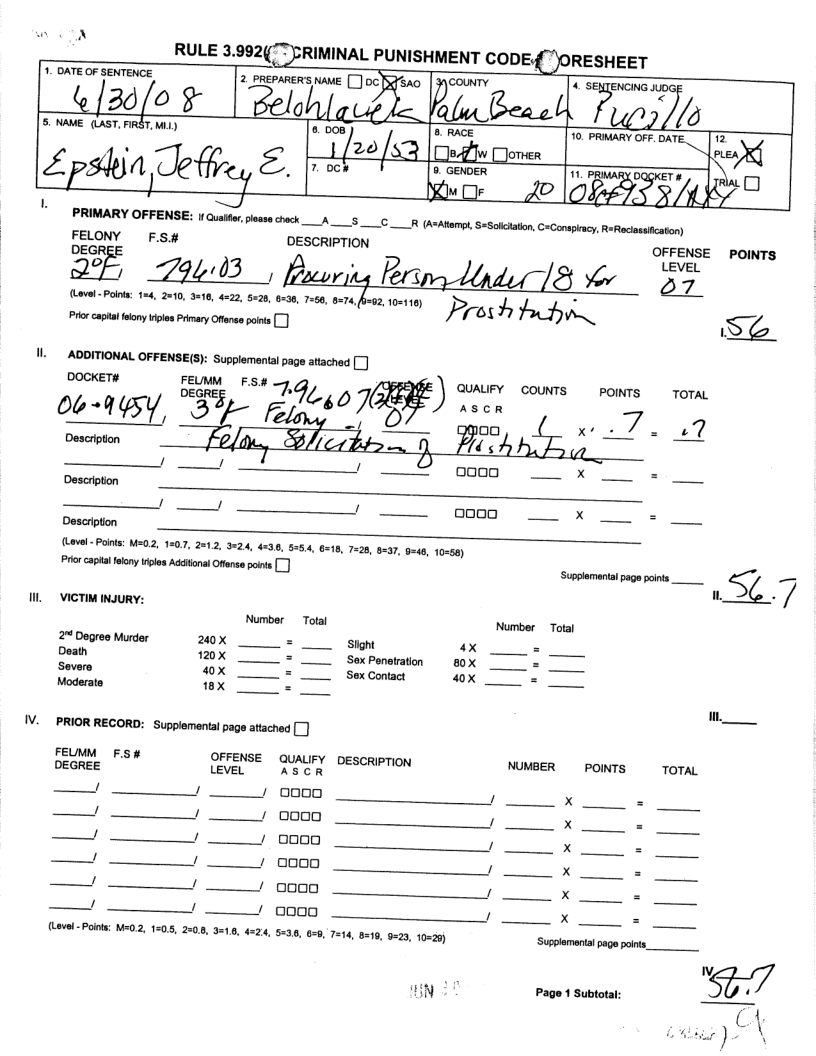 RULE 3.992( CRIMINAL PUNISHMENT CODE ORESHEET
1. DATE OF SENTENCE
6/30/08
2. PREPARER'S NAME DC SAO
Belohlavek
3. COUNTY
Palm Beach
4. SENTENCING JUDGE
Pucillo
5. NAME (LAST, FIRST, MI.I.)
Epstein, Jeffrey E.
6. DOB
1/20/53
7. DC#
8. RACE
B W OTHER
9. GENDER
M F
20
10. PRIMARY OFF. DATE
11. PRIMARY DOCKET #
12.
PLEA
TRIAL
I.
PRIMARY OFFENSE: If Qualifier, please check ___A ___S ___C ___R (A=Attempt, S=Solicitation, C=Conspiracy, R=Reclassification)
FELONY DEGREE F.S.# DESCRIPTION OFFENSE LEVEL POINTS
2°F, 796.03, Procuring Person Under 18 for 07
Prostitution
(Level - Points: 1=4, 2=10, 3=16, 4=22, 5=28, 6=36, 7=56, 8=74, 9=92, 10=116)
Prior capital felony triples Primary Offense points
I. 56
II. ADDITIONAL OFFENSE(S): Supplemental page attached
DOCKET# FEL/MM DEGREE F.S.# OFFENSE LEVEL QUALIFY A S C R COUNTS POINTS TOTAL
796.07
06-9454, 3°F Felony 01 1 x .7 = .7
Description Felony Solicitation of Prostitution
/ / / X =
Description
/ / / X =
Description
(Level - Points: M=0.2, 1=0.7, 2=1.2, 3=2.4, 4=3.6, 5=5.4, 6=18, 7=28, 8=37, 9=46, 10=58)
Prior capital felony triples Additional Offense points
Supplemental page points
II. 56.7
III. VICTIM INJURY:
Number Total Number Total
2nd Degree Murder 240 X = Slight 4 X =
Death 120 X = Sex Penetration 80 X =
Severe 40 X = Sex Contact 40 X =
Moderate 18 X =
III.
IV. PRIOR RECORD: Supplemental page attached
FEL/MM DEGREE F.S # OFFENSE LEVEL QUALIFY A S C R DESCRIPTION NUMBER POINTS TOTAL
/ / / / X =
/ / / / X =
/ / / / X =
/ / / / X =
/ / / / X =
/ / / / X =
(Level - Points: M=0.2, 1=0.5, 2=0.8, 3=1.6, 4=2.4, 5=3.6, 6=9, 7=14, 8=19, 9=23, 10=29)
Supplemental page points
IV 56.7
JUN
Page 1 Subtotal: